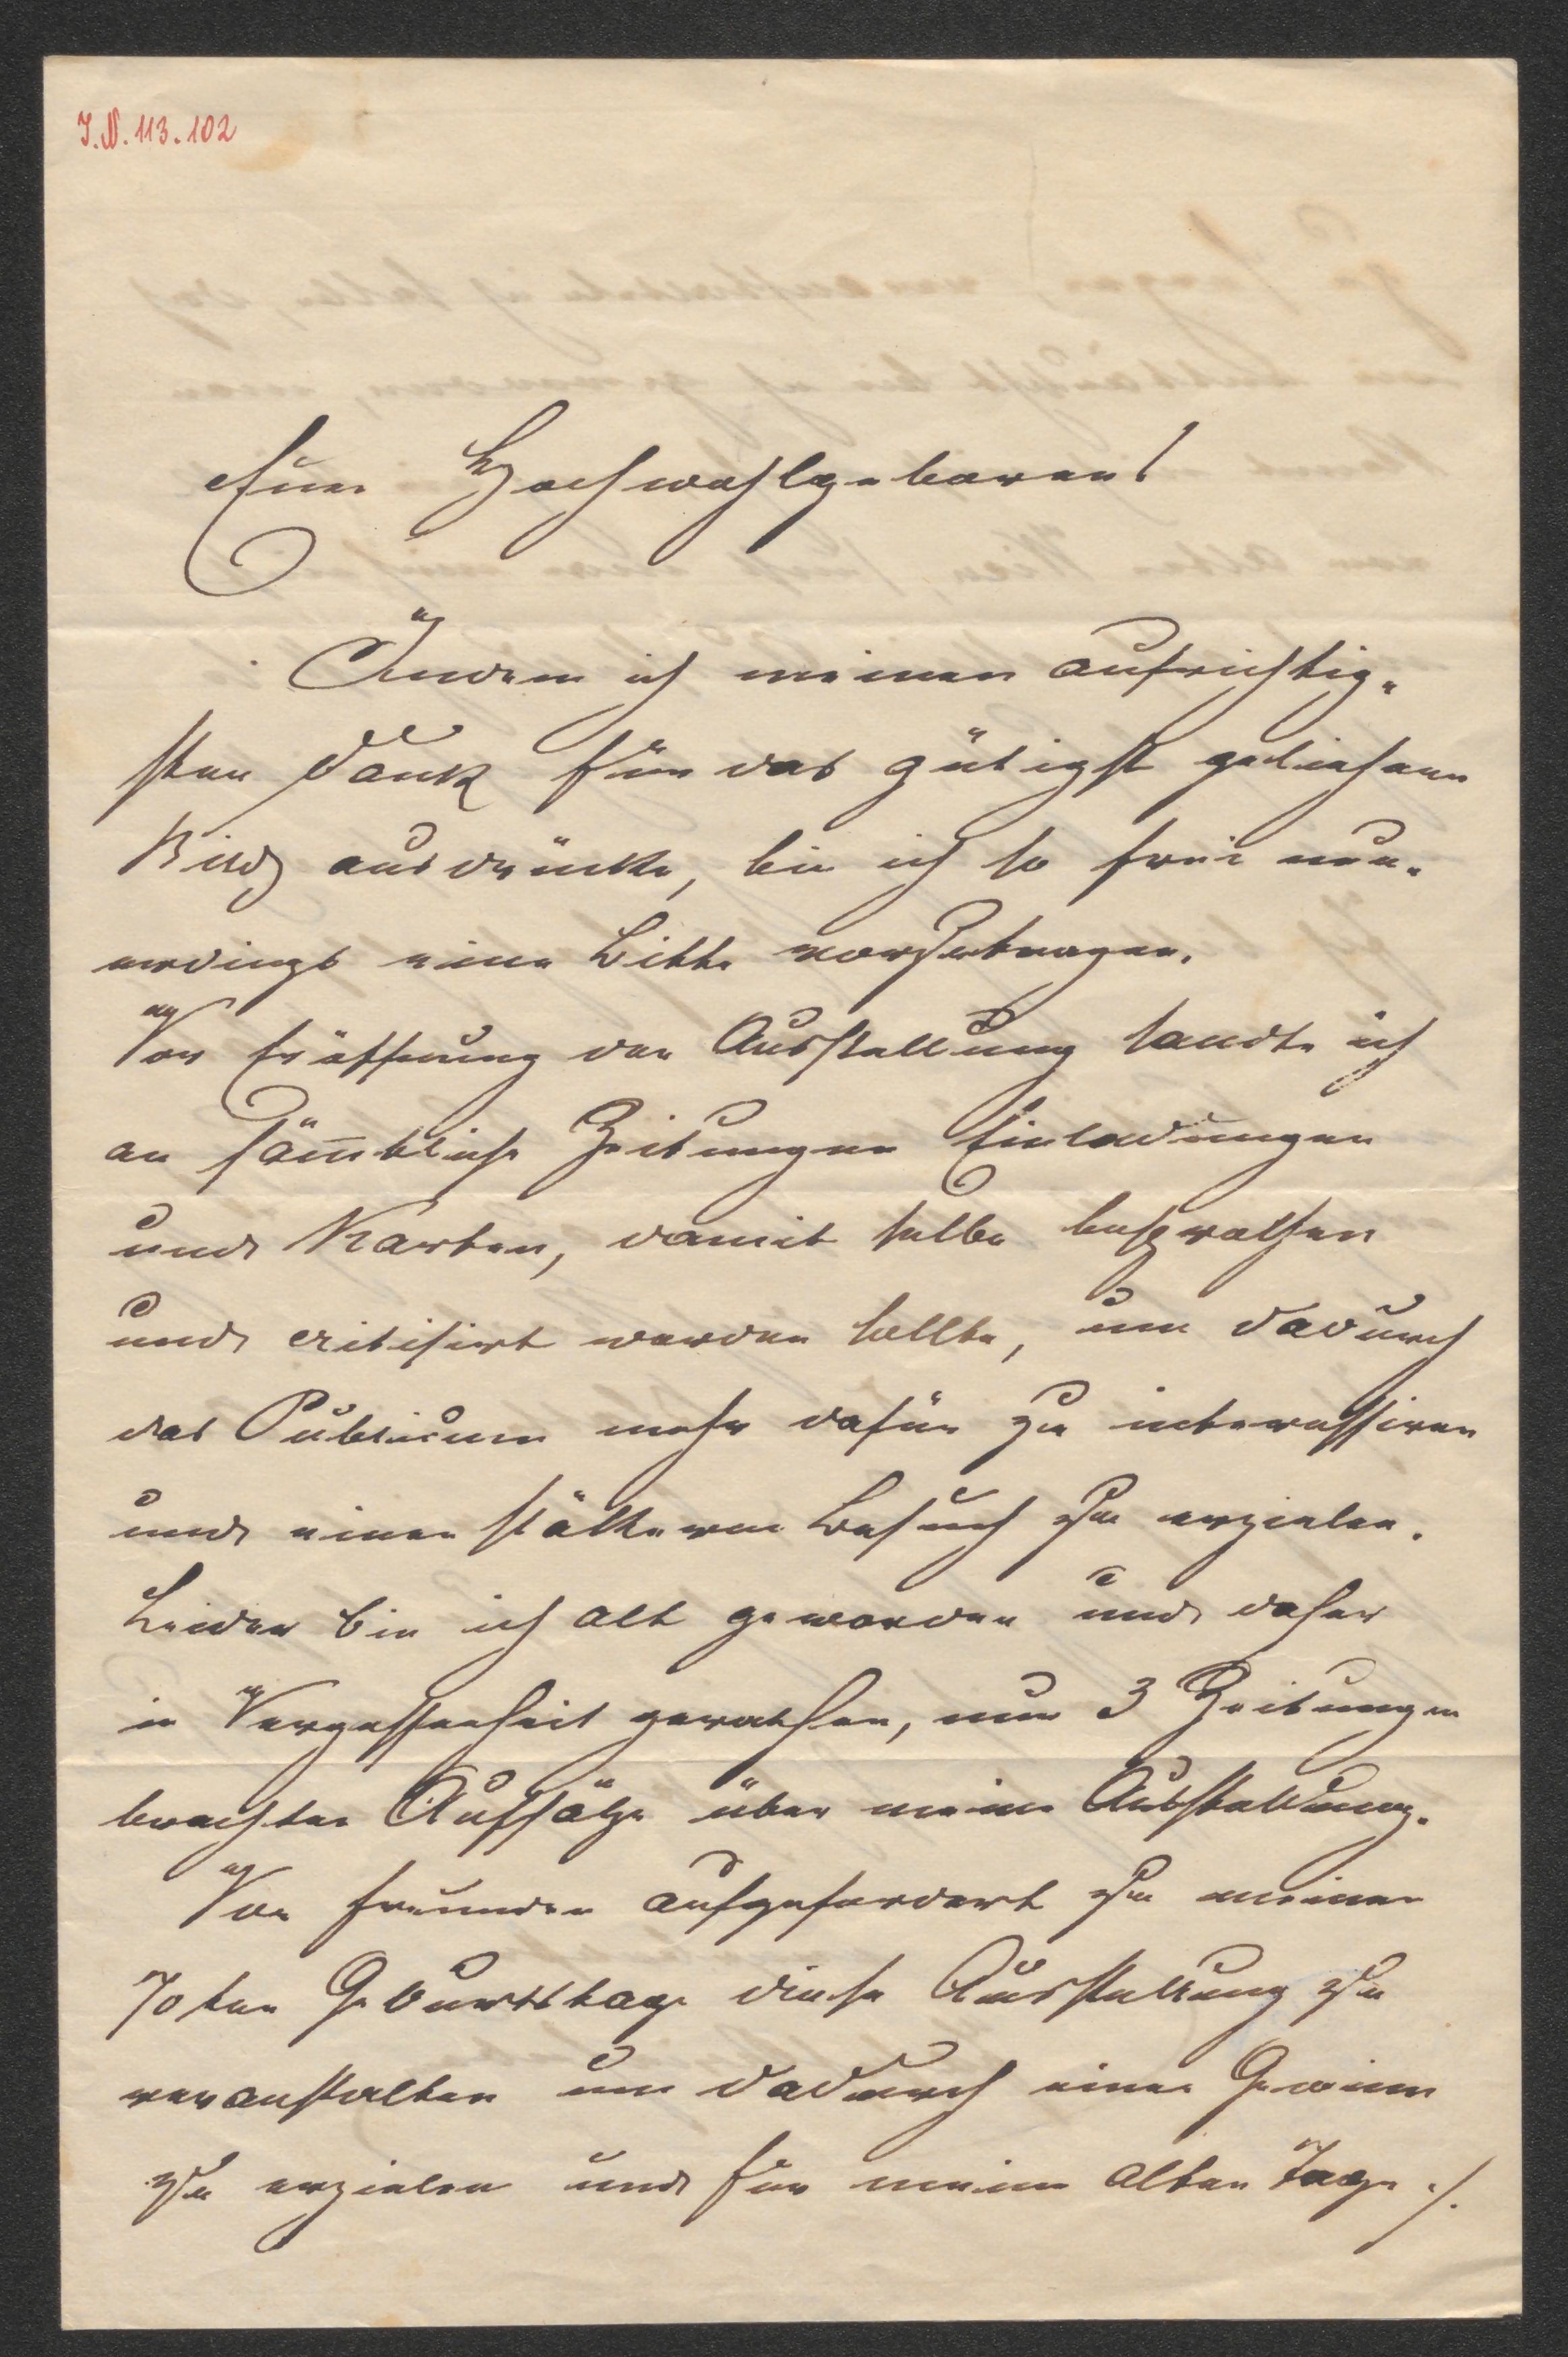 I.N. 113.102
Euer Hochwohlgeboren!
Indem ich meinen aufrichtig-
sten Dank für das gütigst geliehene
Bild ausdrücke, bin ich so frei neu-
erdings eine Bitte vorzutragen.
Vor Eröffnung der Ausstellung sandte ich
an säm̅tliche Zeitungen Einladungen
und Karten, damit selbe besprochen
und critisirt werden sollte, um dadurch
das Publicum mehr dafür zu interessiren
und einen stärkeren Besuch zu erzielen.
Leider bin ich alt geworden und daher
in Vergessenheit gerathen, nur 3 Zeitungen
brachten Aufsätze über meine Ausstellung.
Von Freunden aufgefordert zu meinem
70ten Geburtstage diese Ausstellung zu
veranstalten um dadurch einen Gewinn
zu erzielen und für meine alten Tage ./.